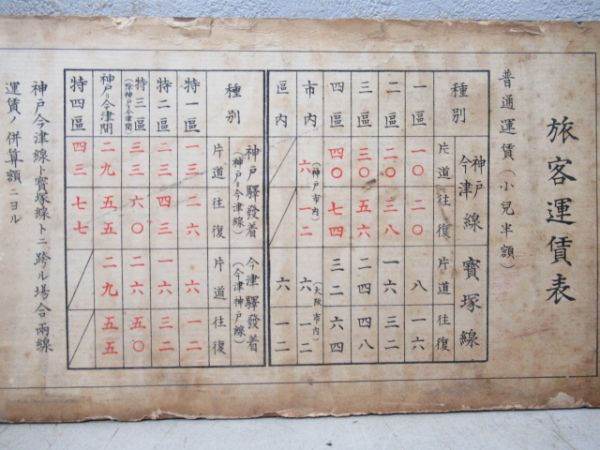 旅客運賃表
普通運賃(小兒半額)
種別 神戸線 今津線 片道 往復 寶塚線 片道 往復
一區 一〇 二〇 八 一六
二區 二〇 三八 一六 三二
三區 三〇 五六 二四 四八
四區 四〇 七四 三二 六四
市内 六 一二 (神戸市内) 六 一二 (大阪市内)
區内 六 一二
種別 神戸驛發着 (神戸ヨリ今津線) 片道 往復 今津驛發着 (今津神戸線) 片道 往復
特一區 一三 二六 六 一二
特二區 二三 四三 一六 三二
特三區 (除神戸ヨリ今津間) 三三 六〇 二六 五〇
神戸ヨリ今津間 二九 五五 二九 五五
特四區 四三 七七
神戸今津線ト寶塚線トニ跨ル場合兩線
運賃ノ併算額ニヨル